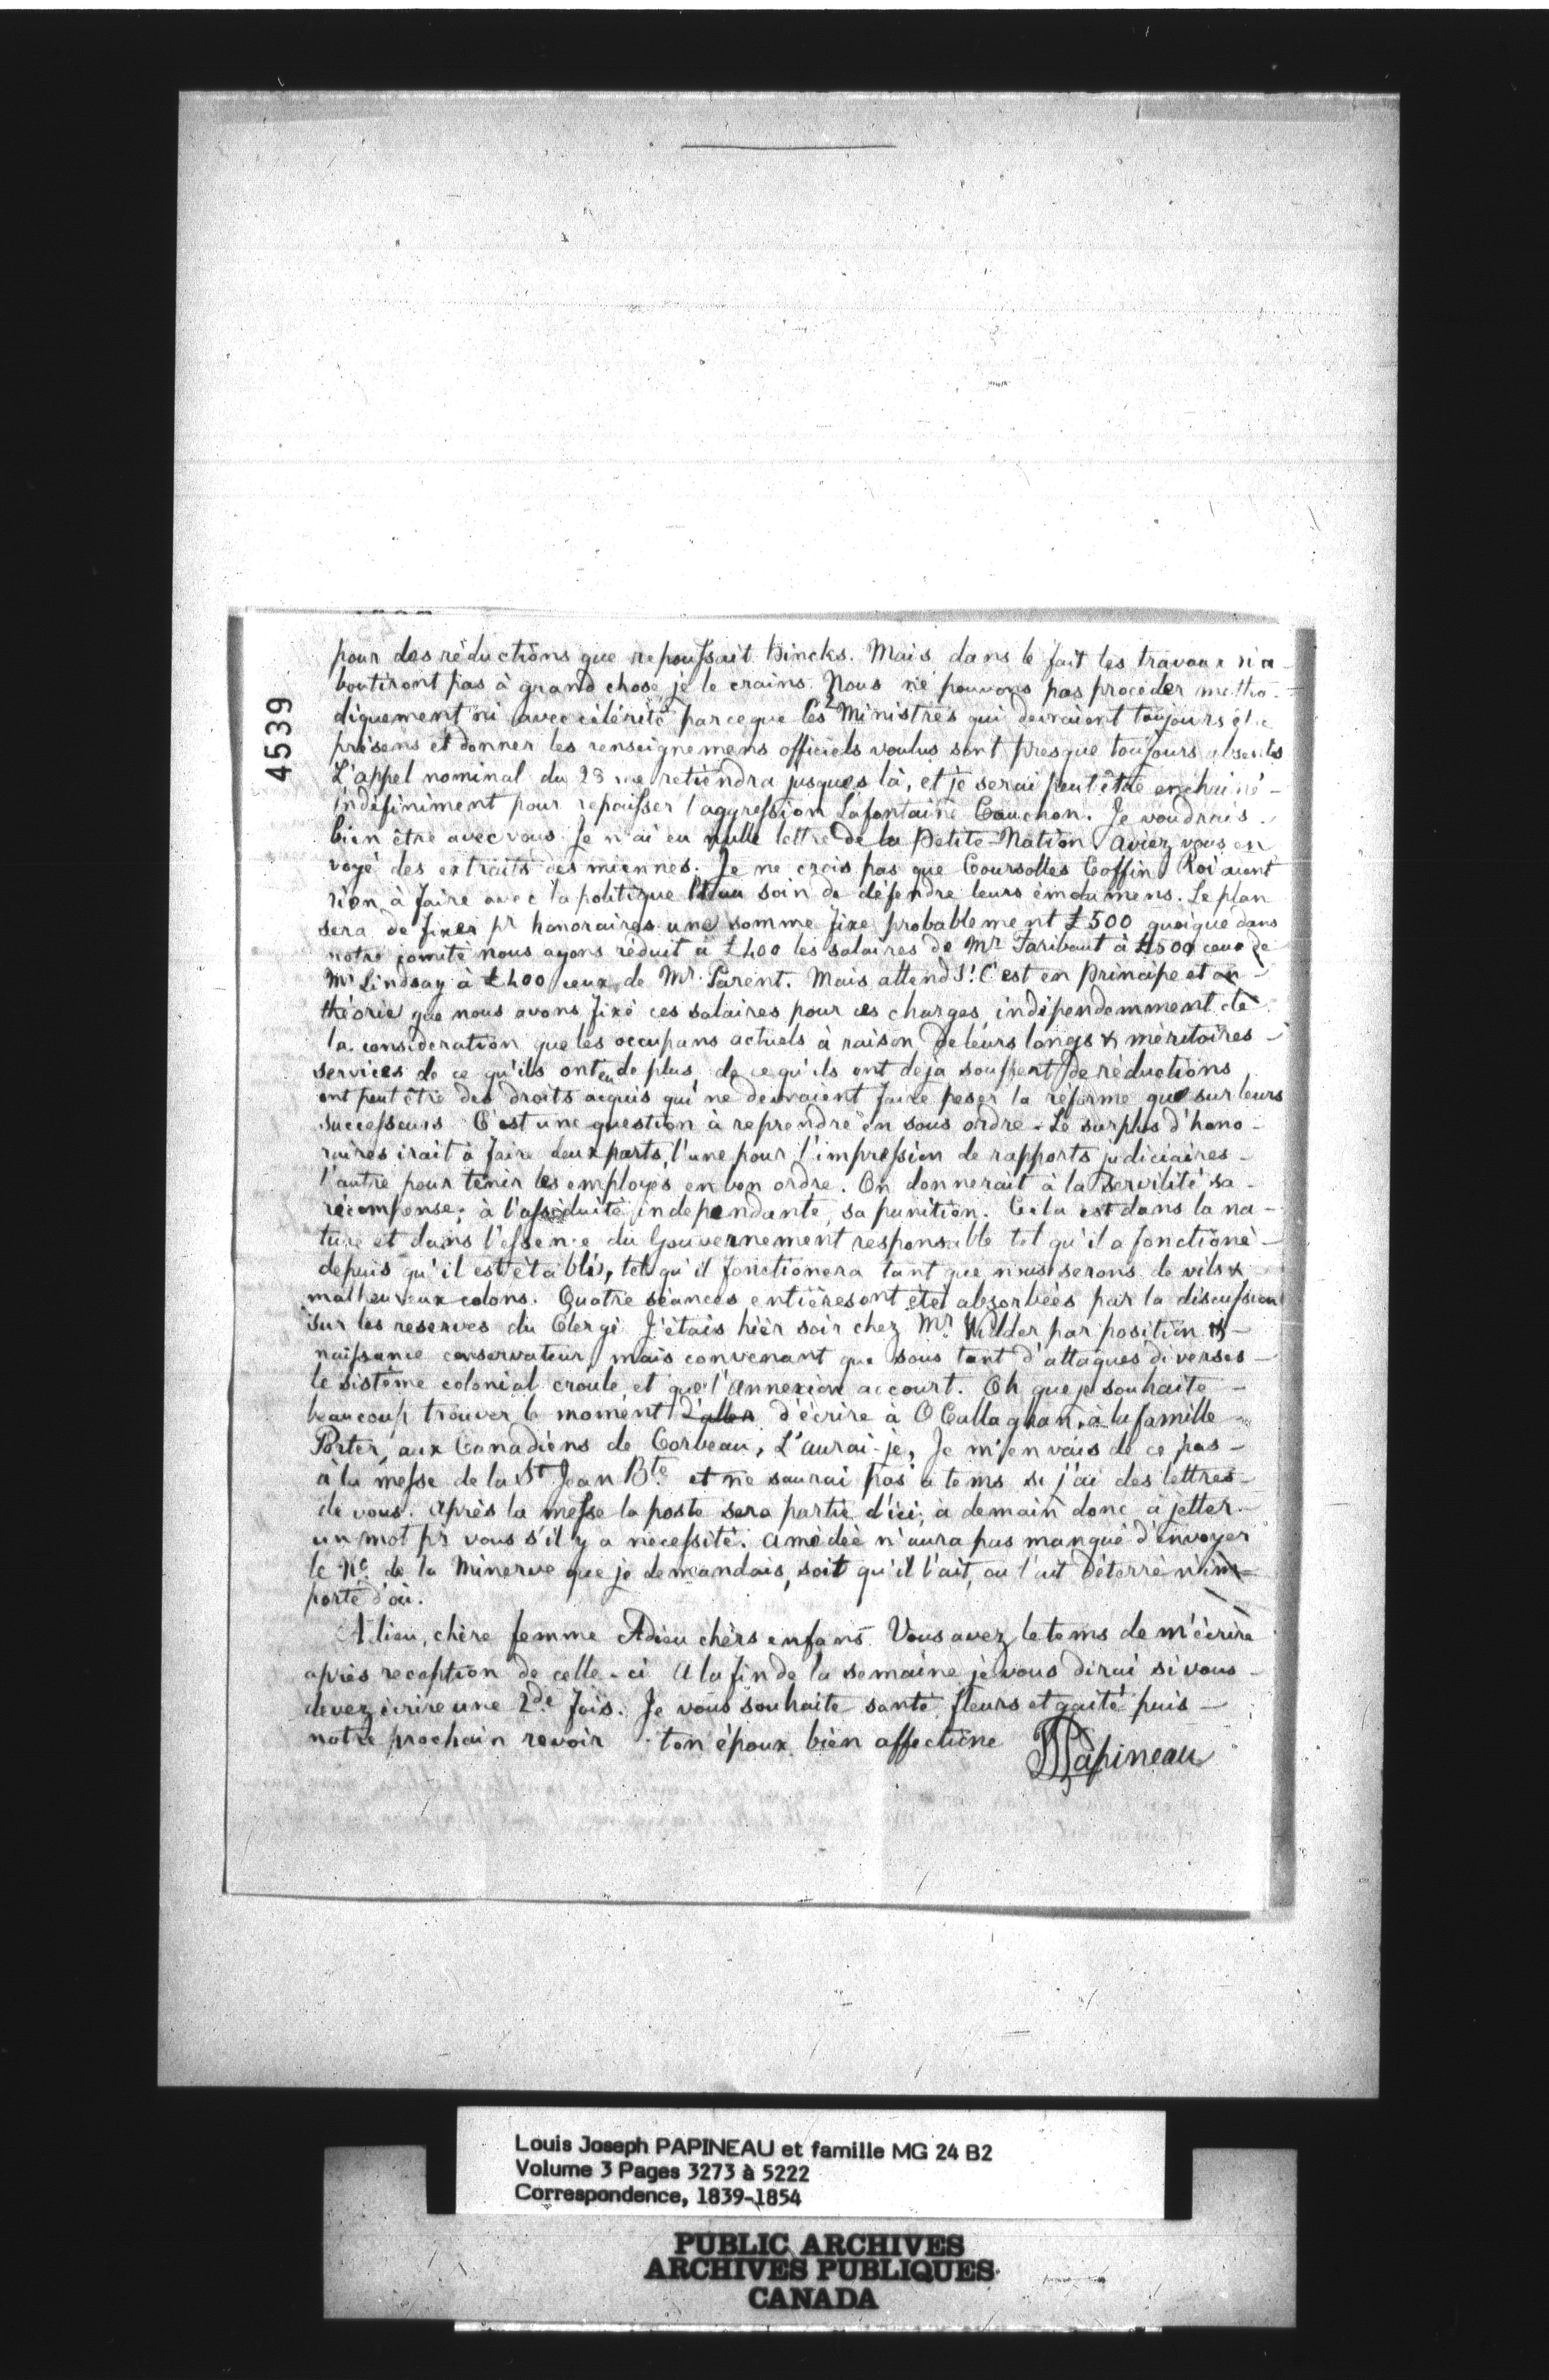 4539
pour des réductions que repoussait Hincks. Mais dans le fait les travaux n'a-
boutiront pas à grand chose je le crains. Nous ne pouvons pas procéder métho-
diquement ni avec célérité parceque les 2 Ministres qui devraient toujours être
présens et donner les renseignemens officiels voulus sont presque toujours absents
L'appel nominal du 28 me retiendra jusques là, et je serai peut être enchainé
indéfiniment pour repousser l'aggression Lafontaine Cauchon. Je voudrais
bien être avec vous. Je n'ai eu nulle lettre de la Petite-Nation aviez vous en
voyé des extraits des miennes. Je ne crois pas que Coursolles Coffin Roi aient
rien à faire avec la politique soin de défendre leurs émolumens. Le plan
sera de fixer pr honoraires une somme fixe probablement £500 quoique dans
notre comité nous ayons réduit à £400 les salaires de Mr Faribaut à £500 ceux de
Mr Lindsay à £400 ceux de Mr. Parent. Mais attends! C'est en principe et en
théorie que nous avons fixé ces salaires pour ces charges, indépendemment de
la consideration que les occupans actuels à raison de leurs longs & méritoires
services de ce qu'ils ont eu de plus, de ce qu'ils ont deja souffert de réductions
ont peut être des droits acquis qui ne devraient faire peser la réforme que sur leurs
successeurs C'est une question à reprendre en sous ordre. Le surplus d'hono-
raires irait à faire deux parts, l'une pour l'impression de rapports judiciaires
l'autre pour tenir les employés en bon ordre. On donnerait à la servilité sa
récompense; à l'assiduité indépendante, sa punition. Cela est dans la na-
ture et dans l'essence du Gouvernement responsable tel qu'il a fonctioné
depuis qu'il est établi, tel qu'il fonctionera tant que nous serons de vils &
malheureux colons. Quatre séances entières ont été absorbées par la discussion
sur les reserves du Clergé J'étais hièr soir chez Mr. Widder par position &
naissance conservateur, mais convenant que sous tant d'attaques diverses
le sistème colonial croule et que l'annexion accourt. Oh que je souhaite
beaucoup trouver le moment d'aller d'écrire à O Callaghan, à la famille
Porter, aux Canadiens de Corbeau, L'aurai-je, Je m'en vais de ce pas
à la messe de la St Jean Bte. et ne saurai pas a tems si j'ai des lettres
de vous. Après la messe la poste sera partie d'ici, à demain donc à jetter
un mot pr vous s'il y a nécessité. Amédée n'aura pas manqué d'envoyer
le No. de la Minerve que je demandais, soit qu'il l'ait, ou l'ait déterré n'im-
porte d'où.
Adieu, chère femme Adieu chèrs enfans. Vous avez le tems de m'écrire
après reception de celle-ci A la fin de la semaine je vous dirai si vous
devez écrire une 2de. fois. Je vous souhaite santé fleurs et gaité puis
notre prochain revoir ton époux bien affectioné
LJPapineau
Louis Joseph PAPINEAU et famille MG 24 B2
Volume 3 Pages 3273 à 5222
Correspondence, 1839-1854
PUBLIC ARCHIVES
ARCHIVES PUBLIQUES
CANADA